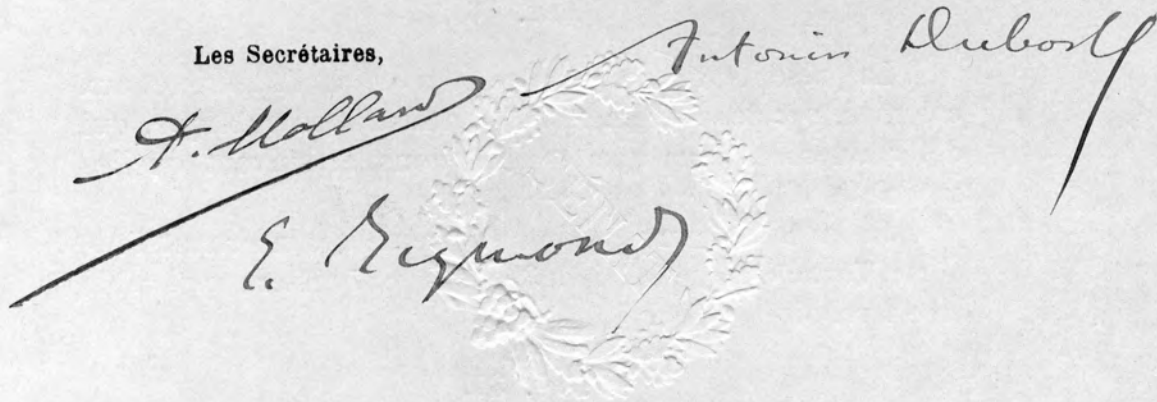 Les Secrétaires,
Antonin Dubost
A. Mollard
E. Reymond